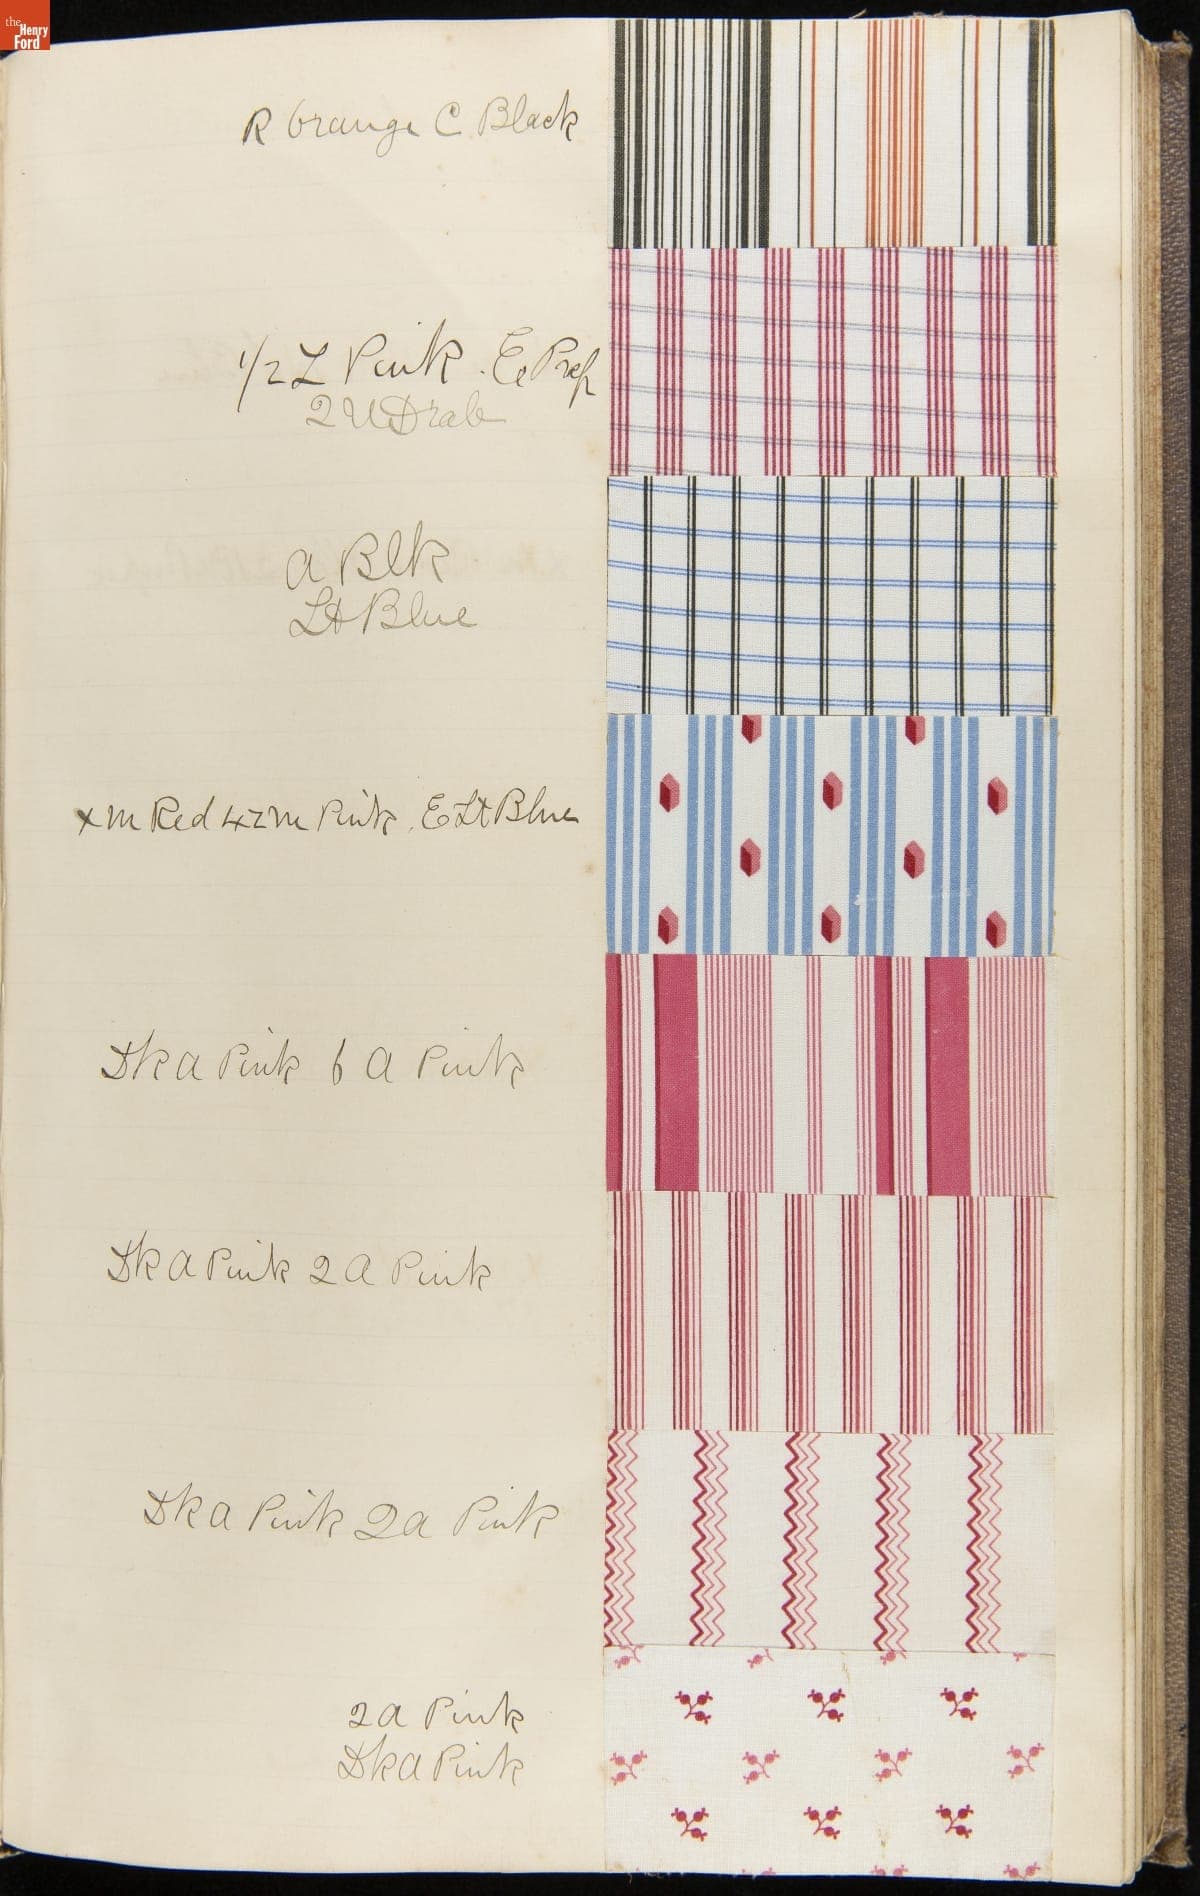 the
Henry
Ford
R Orange C Black
1/2 L Pink . E Prep
2 U Drab
A Blk
Lt Blue
x m Red 4zm Pink . E Lt Blue
Dk A Pink 6 A Pink
Dk A Pink 2 A Pink
Dk A Pink 2 A Pink
2 A Pink
Dk A Pink